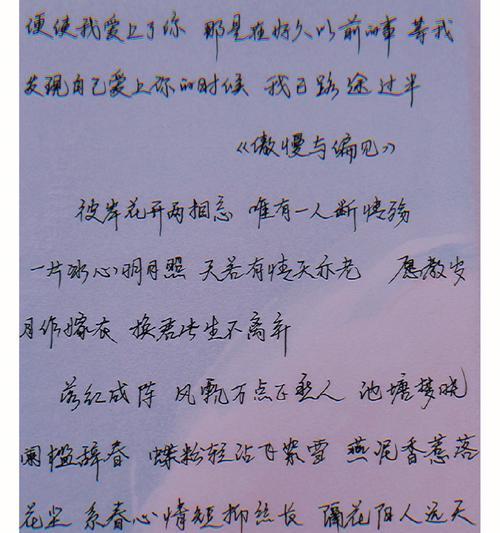 便使我爱上了你 那是在好久以前的事 等我
发现自己爱上你的时候 我已路途过半
《傲慢与偏见》
彼岸花开两相忘 唯有一人断情殇
一片冰心明月照 天若有情天亦老 愿教岁
月作嫁衣 换君此生不离弃
落红成阵 风飘万点正愁人 池塘梦晓
阑槛辞春 蝶粉轻沾飞絮雪 燕泥香惹落
花尘 系春心情短柳丝长 隔花阴人远天